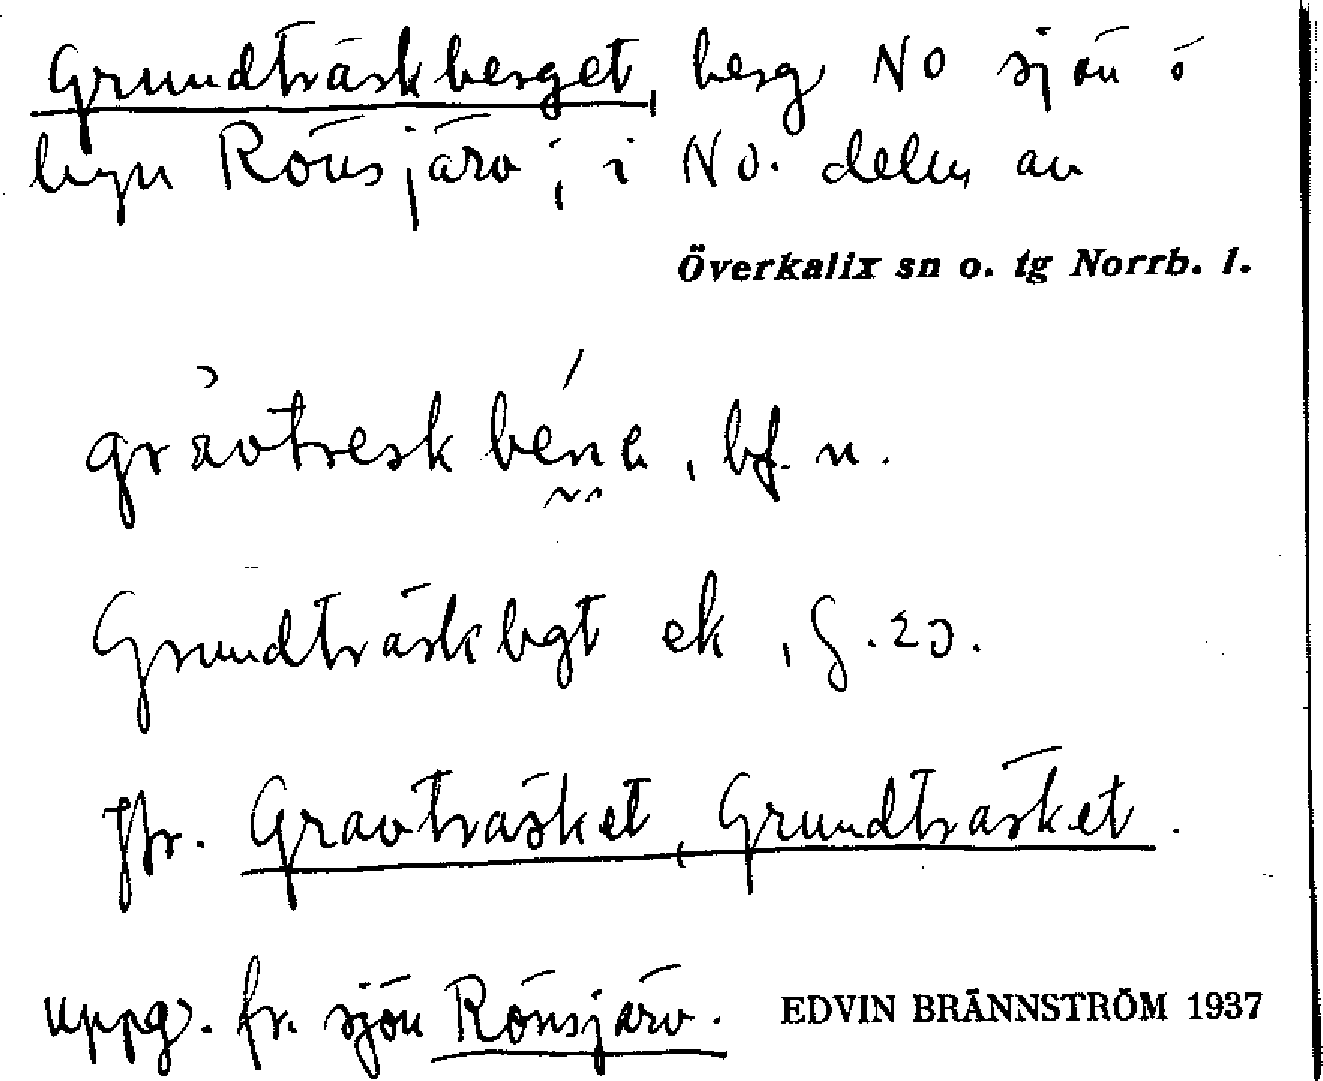 Grundträskberget, berg NO sjön o
byn Rönsjärv; i NO. delen av
Överkalix sn o. tg Norrb. l.
bf. n.
Grundträskbgt ek, g. 23.
Jfr. Gravträsket, Grundträsket.
uppg. fr. sjön Rönsjärv. EDVIN BRÄNNSTRÖM 1937